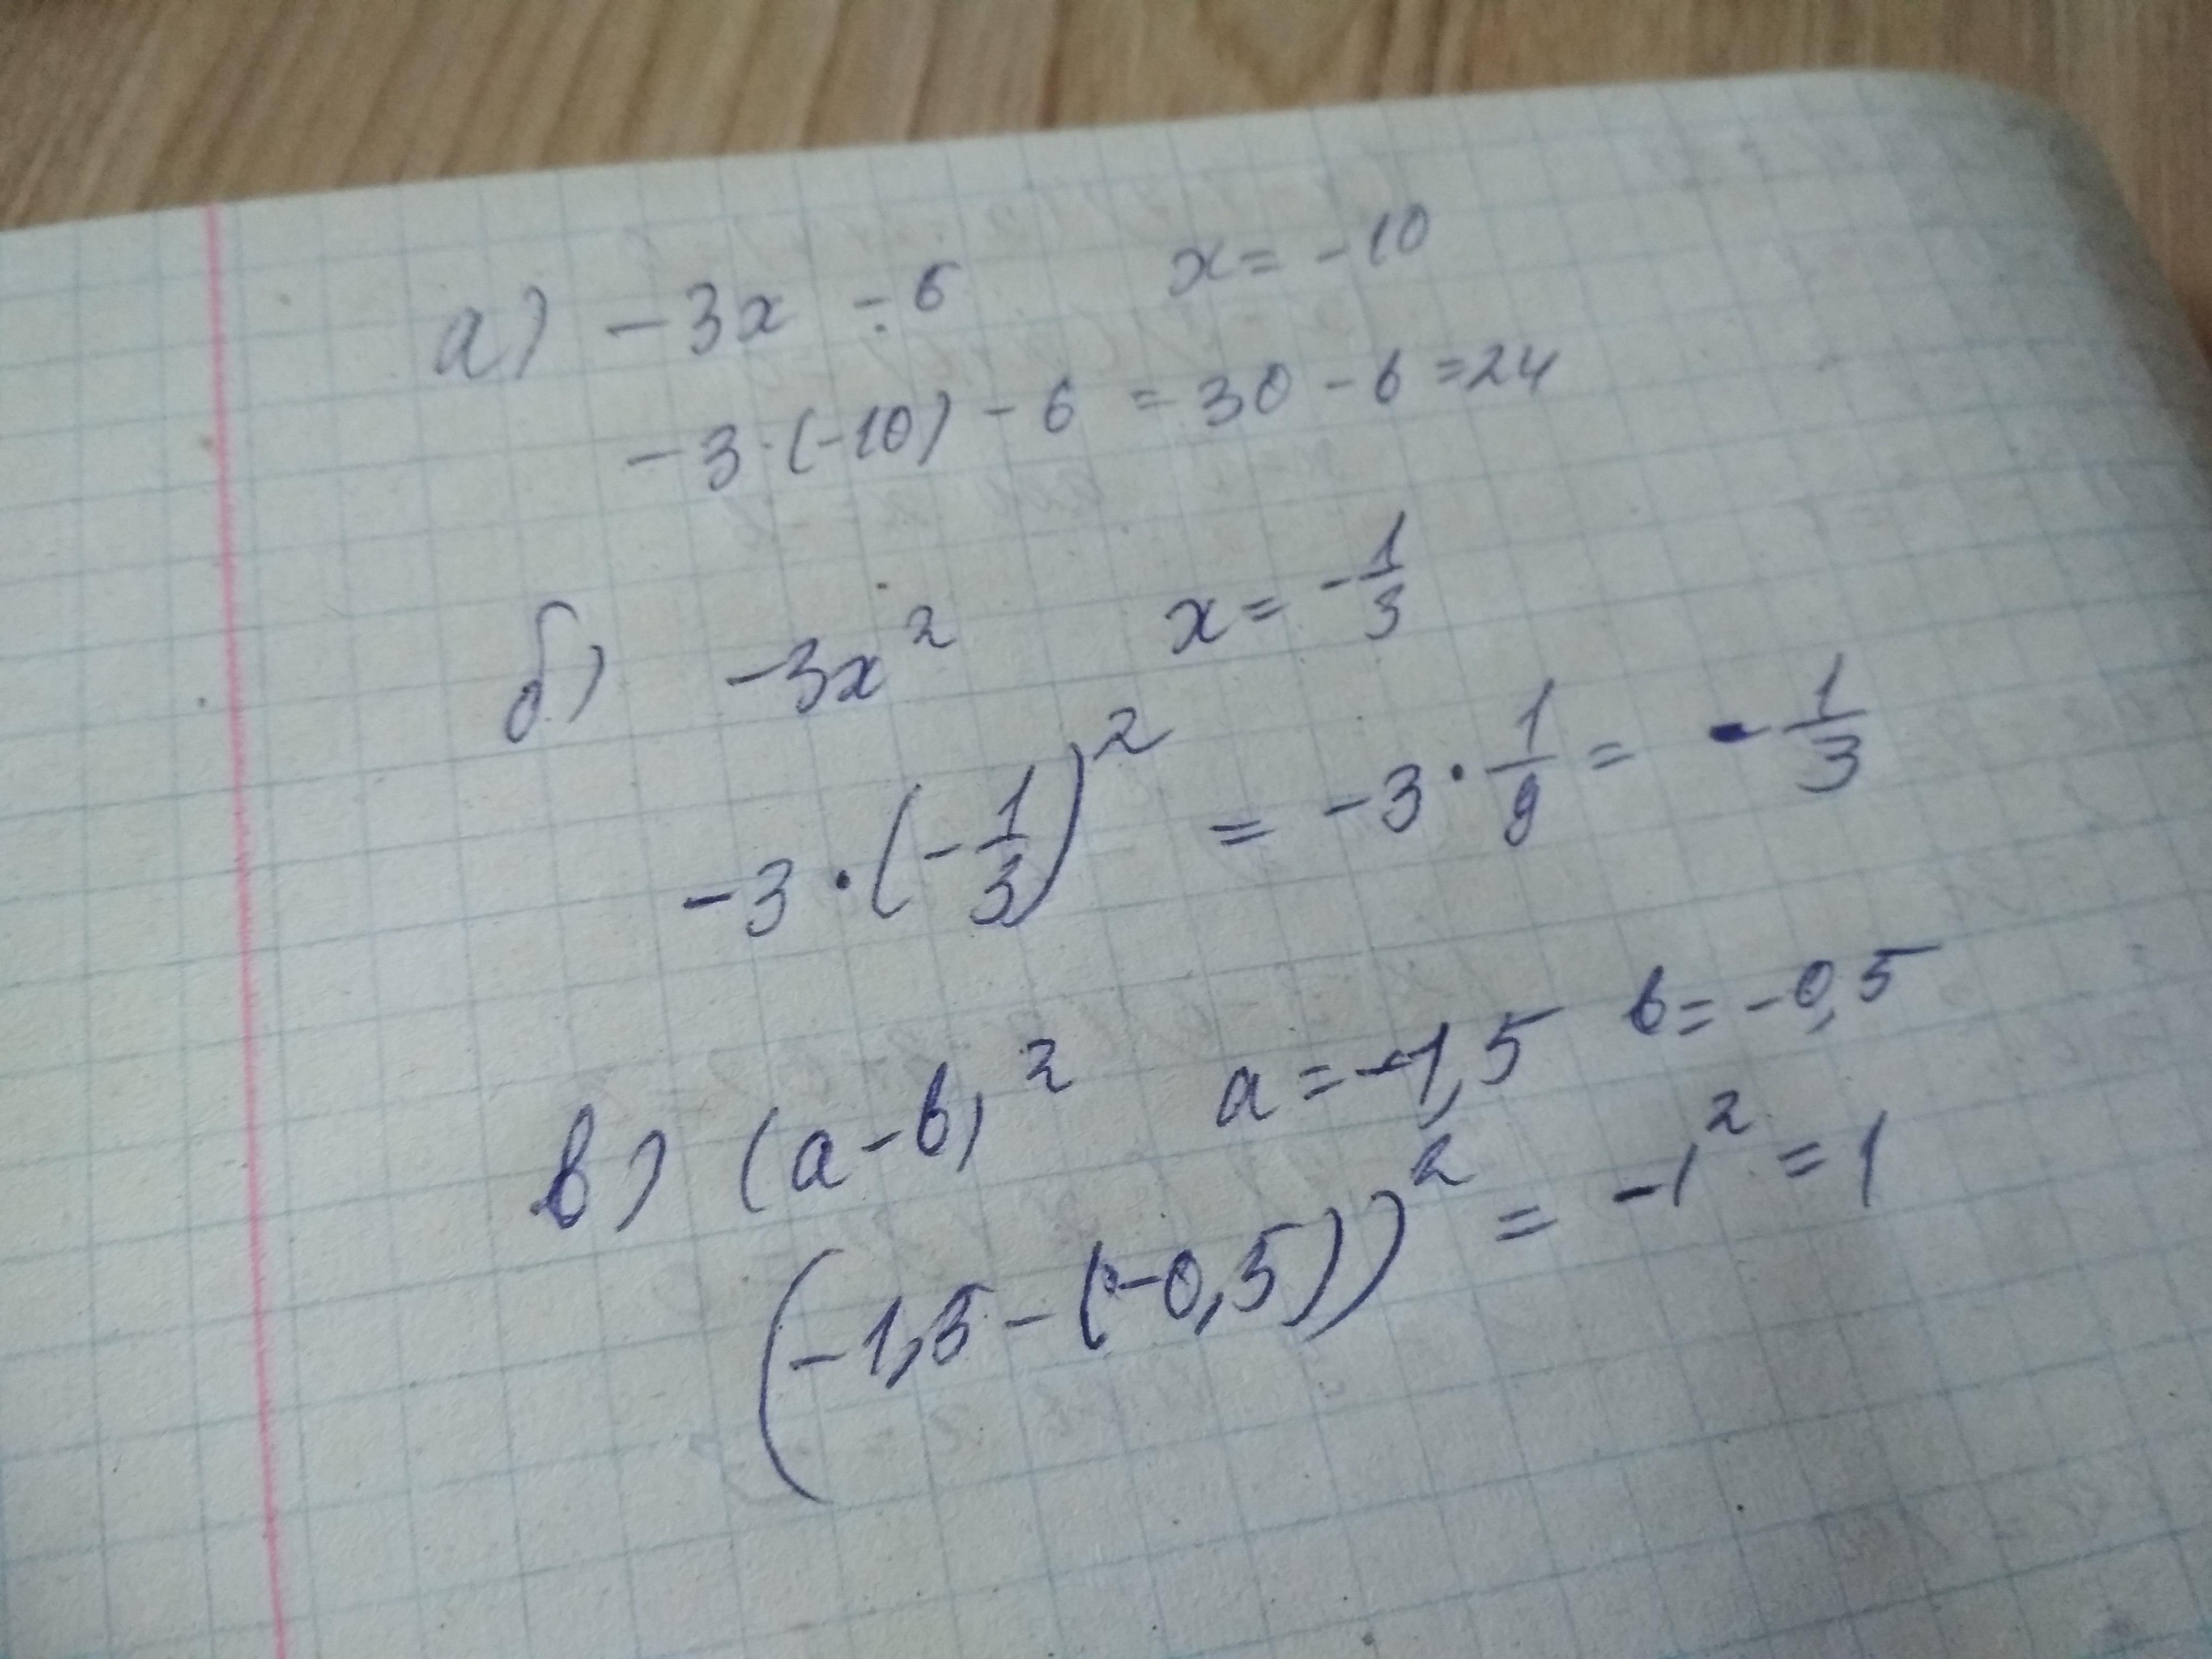 а) −3x − 6 x = −10
−3·(−10) − 6 = 30 − 6 = 24
б) −3x² x = −1/3
−3·(−1/3)² = −3·1/9 = −1/3
в) (a−b)² a = −1,5 b = −0,5
(−1,5−(−0,5))² = −1² = 1